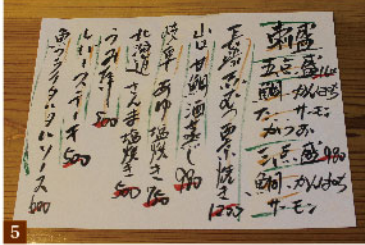 刺盛
五点盛
鯛、かんぱち
サーモン
かつお
三点盛 980
鯛、かんぱち
サーモン
長崎 赤むつ 西京焼き 1200
山口 甘鯛 酒蒸し 980
岐阜 あゆ 塩焼き 750
北海道 さんま 塩焼き 500
500
レバーステーキ 500
魚フライタルタルソース 600
5